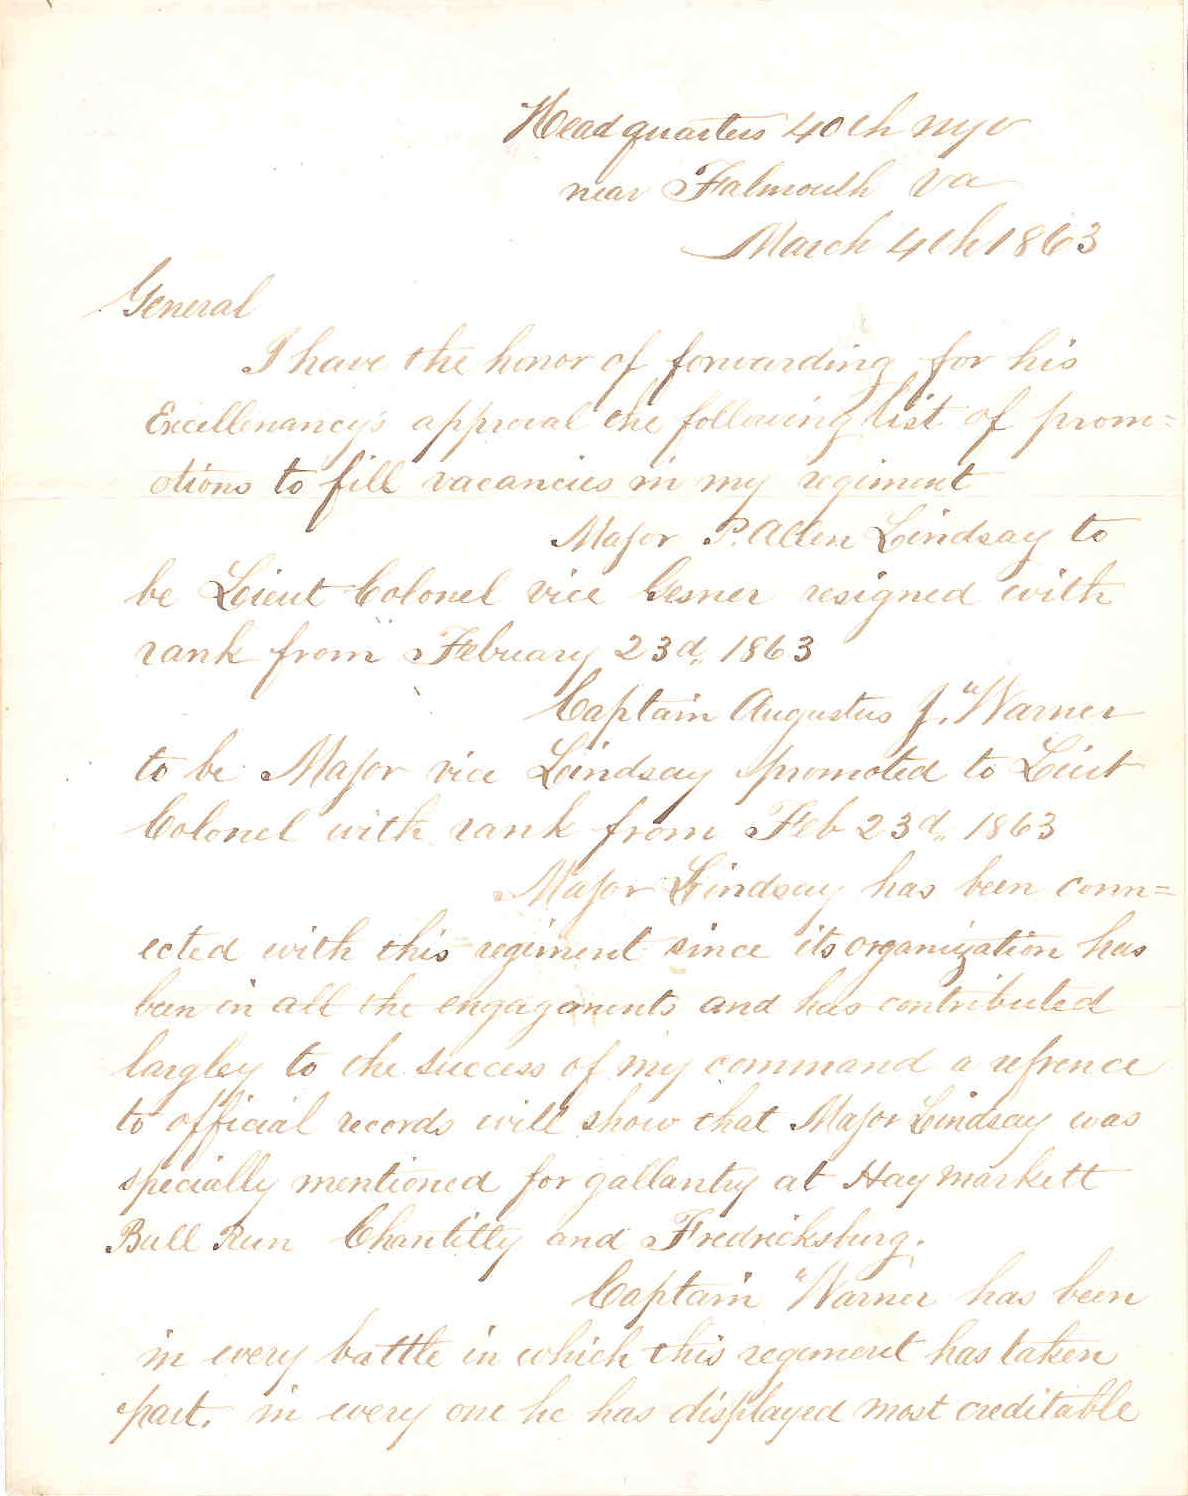 Headquarters 40th nyv
near Falmouth Va
March 4th 1863
General
I have the honor of forwarding for his
Excellenancy's approval the following list of prom=
otions to fill vacancies in my regiment
Major P. Allen Lindsay to
be Lieut Colonel vice Gesner resigned with
rank from Febuary 23d, 1863
Captain Augustus J. Warner
to be Major vice Lindsay promoted to Lieut
Colonel with rank from Feb 23d, 1863
Major Lindsay has been conn=
ected with this regiment since its organization has
been in all the engagements and has contributed
largley to the success of my command a refrence
to official records will show that Major Lindsay was
specially mentioned for gallantry at Haymarkett
Bull Run Chantilly and Fredricksburg.
Captain Warner has been
in every battle in which this regiment has taken
part. in every one he has displayed most creditable